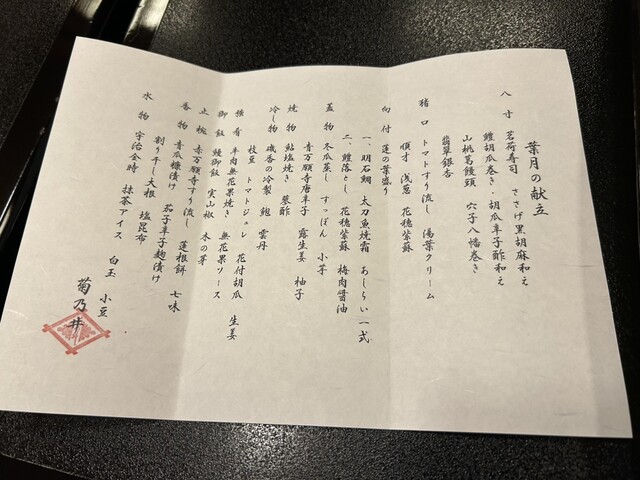 葉月の献立
八寸 茗荷寿司 ささげ黒胡麻和え
鱧胡瓜巻き・胡瓜辛子酢和え
山桃葛饅頭 穴子八幡巻き
翡翠銀杏
猪口 トマトすり流し 湯葉クリーム
順才 浅葱 花穂紫蘇
向付 蓮の葉盛り
一、明石鯛 太刀魚焼霜 あしらい一式
二、鱧落とし 花穂紫蘇 梅肉醤油
蓋物 冬瓜蒸し すっぽん 小芋
青万願寺唐辛子 露生姜 柚子
焼物 鮎塩焼き 蓼酢
冷し物 磯香の冷製 鮑 雲丹
枝豆 トマトジュレ 花付胡瓜 生姜
強肴 牛肉無花果焼き 無花果ソース
御飯 鰻御飯 実山椒 木の芽
止椀 赤万願寺すり流し 蓮根餅 七味
香物 青瓜糠漬け 茄子辛子麹漬け
割り干し大根 塩昆布
水物 宇治金時 抹茶アイス 白玉 小豆
菊乃井